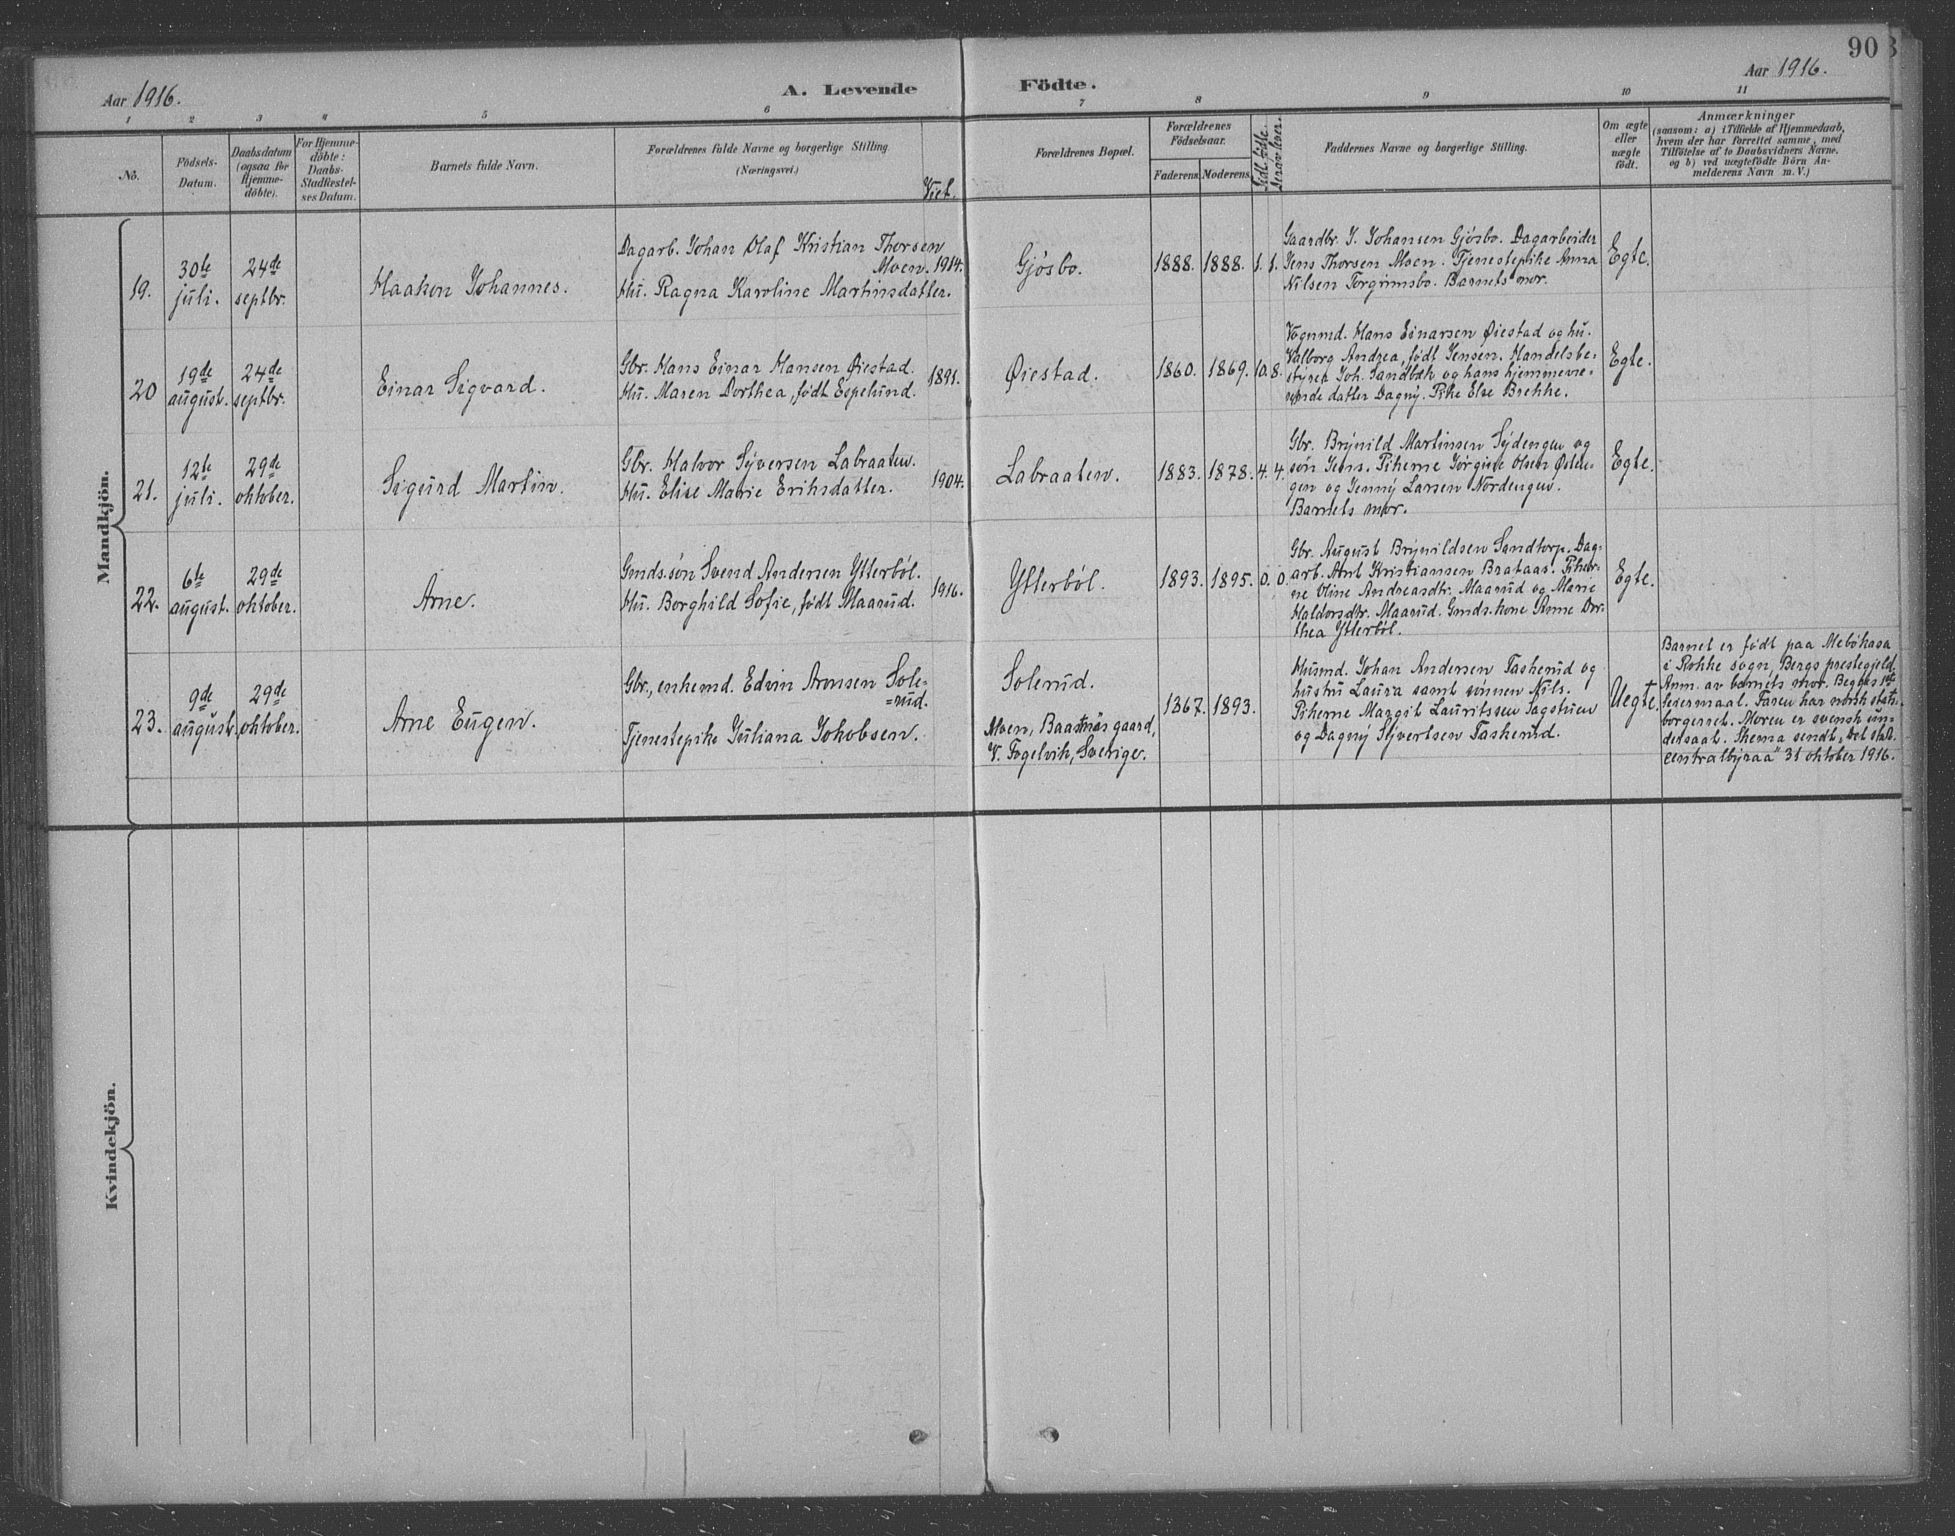 90
Aar 1916.
A. Levende Födte.
Aar 1916.
1 2 3 4 5 6 7 8 9 10 11
No.
Födsels-
Datum.
Daabsdatum
(ogsaa for
Hjemme-
döbte).
For Hjemme-
döbte:
Daabs-
Stadfæstel-
ses Datum.
Barnets fulde Navn.
Forældrenes fulde Navne og borgerlige Stilling.
(Næringsvei.)
Viet.
Forældrenes Bopæl.
Forældrenes
Födselsaar.
Faderens. Moderens.
Tidl. födte.
Derav lever.
Faddernes Navne og borgerlige Stilling.
Om ægte
eller
uægte
födt.
Anmærkninger
(saasom: a) i Tilfælde af Hjemmedaab,
hvem der har forrettet samme, med
Tilföielse af to Daabsvidners Navne,
og b) ved uægtefödte Börn An-
melderens Navn m. V.)
Mandkjön.
19.
30te
juli.
24de
septbr.
Haakon Johannes.
Dagarb. Johan Olaf Kristian Thorsen
Moen.
Hu. Ragna Karoline Martinsdatter.
1914.
Gjösbo.
1888. 1888. 1. 1.
Gaardbr. J. Johansen Gjösbo. Dagarbeider
Jens Thorsen Moen. Tjenestepike Anna
Nilsen Torgrimsbo. Barnets mor.
Egte.
20
19de
august.
24de
septbr.
Einar Sigvard.
Gbr. Hans Einar Hansen Øiestad.
Hu. Maren Dorthea, født Espelund.
1891.
Øiestad.
1860. 1869. 10. 8.
Vognmd. Hans Einarsen Øiestad og hu.
Valborg Andrea, født Jensen. Handelsbe-
styrer Joh. Sandbæk og hans hjemmevæ-
rende datter Dagny. Pike Else Brekke.
Egte.
21.
12te
juli.
29de
oktober.
Sigurd Martin.
Gbr. Halvor Syversen Labraaten.
Hu. Elise Marie Eriksdatter.
1904.
Labraaten.
1883. 1878. 4. 4.
Gbr. Brynild Martinsen Sydengen og
søn Jens. Pikerne Jørgine Olsen Østen-
gen og Jenny Larsen Nordengen.
Barnets mor.
Egte.
22.
6te
august.
29de
oktober.
Arne.
Gmds.søn Svend Andersen Ytterböl.
Hu. Borghild Sofie, født Maarud.
1916.
Ytterböl.
1893. 1895. 0. 0.
Gbr. August Brynildsen Sandtorp. Dag-
arb. Anl. Kristiansen Brataas. Piker-
ne Oline Andreasdtr. Maarud og Marie
Haldorsdtr. Maarud. Gmds. kone Anne Dor-
thea Ytterböl.
Egte.
23.
9de
august.
29de
oktober.
Arne Eugen.
Gbr., enkemd. Edvin Aronsen Sole-
=rud.
Tjenestepike Juliana Jakobsen.
Solerud.
Moen, Baastnäs gaard,
V. Fogelvik, Sverige.
1867. 1893.
Husmd. Johan Andersen Taskerud og
hustru Laura samt sønnen Nils.
Pikerne Margit Lauritssen Sagstuen
og Dagny Syvertsen Taskerud.
Uegte.
Barnet er født paa Mebökasa
i Rokke sogn, Bergs prestegjeld.
Anm. av barnets mor. Begges 1ste
leiermaal. Faren har norsk stats-
borgerret. Moren er svensk un-
dersaat. Skema sendt „Det stat.
centralbyraa" 31 oktober 1916.
Kvindekjön.